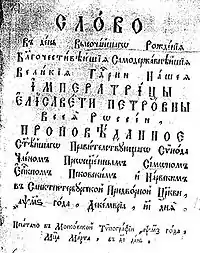 СЛОВО
Въ день Высочайшагѡ Рожденїѧ
Благочестивѣйшїѧ Самодержавнѣйшїѧ
Великїѧ Гдⷭ҇рни Нашеѧ
ІМПЕРАТРИЦЫ
ЕЛІСАВЕТЫ ПЕТРОВНЫ
Всеѧ Рѡссїи,
ПРОПОВѢДАННОЕ
Ст҃ѣйшагѡ Правительствующагѡ Сѵнода
Членомъ Преѡсщ҃еннымъ Сѵмѡномъ
Еп҃скпомъ Псковскимъ и Нарвскимъ
въ Санктпетербургской Придворной Цр҃кви,
года, Декемврїа, дн҃ѧ.
Печатано въ Московской Тѵпографїи года,
Мц҃а Марта, въ день.